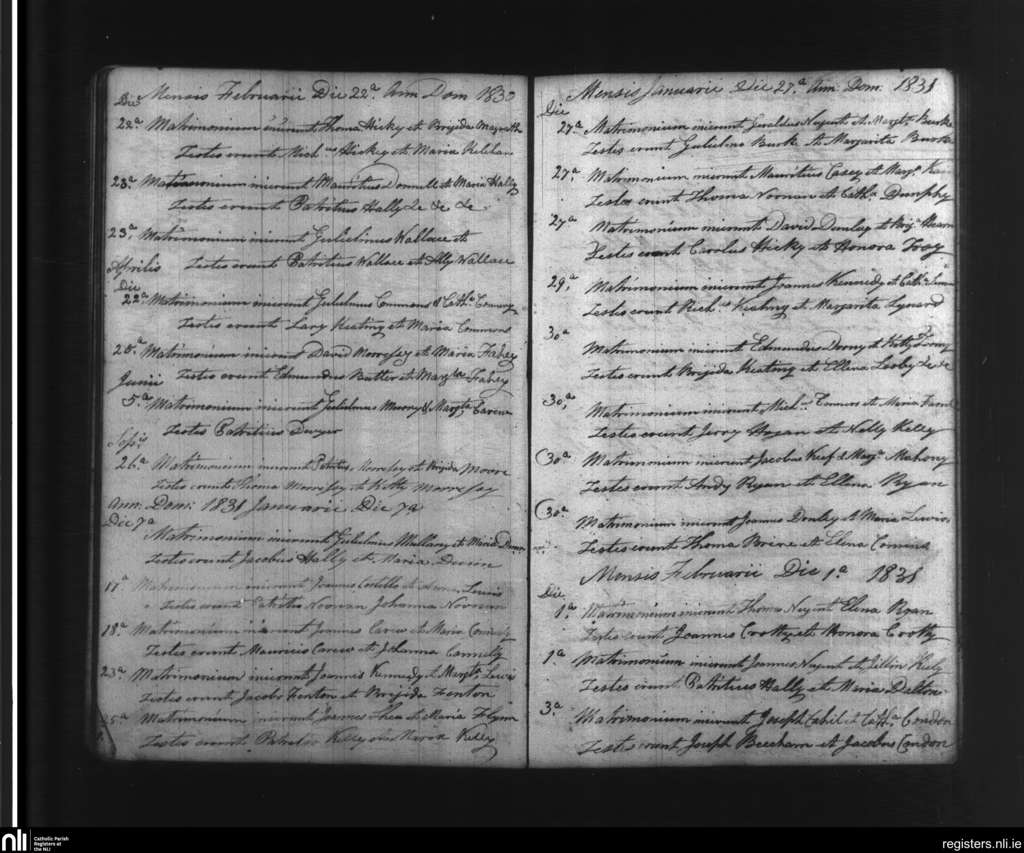 Mensis Februarii Die 22a Ann Dom 1830
Die
22a Matrimonium inierunt Thoma Hickey et Brigida Magrath
Testes erunt Mich us Hickey et Maria Kelehan
23a Matrimonium inierunt Mauritius Donnell et Maria Hally
Testes erunt Patritius Hally &c &c &c
23a Matrimonium inierunt Gulielmus Wallace et
Testes erunt Patritius Wallace et Ally Wallace
Aprilis
Die
22a Matrimonium inierunt Gulielmus Commons & Catha
Testes erunt Lary Keating et Maria Commons
25a Matrimonium inierunt David Morrisey et Maria Fahey
Testes erunt Edmundus Butler et Margta Fahey
Junii
5a Matrimonium inierunt Gulielmus & Margta Carew
Testes Patritius Dwyer
26a Matrimonium inierunt Patritius Morrisey et Brigida Moore
Testes erunt Thoma Morrisey et Kitty Morrisey
Ann: Dom: 1831 Januarii Die 7a
Die 7a
Matrimonium inierunt Gulielmus Mullany et Maria
Testes erunt Jacobus Hally et Maria
17a Matrimonium inierunt Joannes Costello et Lewis
Testes erunt Patritius Noonan Johanna Noonan
18a Matrimonium inierunt Joannes Carew et Maria
Testes erunt Mauricius Carew et Johanna Connelly
23a Matrimonium inierunt Joannis Kennedy et Margta Lewis
Testes erunt Jacobi Fenton et Brigida Fenton
25a Matrimonium inierunt Joannes Shea et Maria Flynn
Testes erunt Patritius Kelly Kelly
Mensis Januarii Die 27a Ann. Dom. 1831
Die
27a Matrimonium inierunt Geraldus Nugent et Margta Burke
Testes erunt Gulielmus Burk et Margarita Burke
27a Matrimonium inierunt Mauritius Casey et Margta
Testes erunt Thoma Noonan et Catha Dunphy
27a Matrimonium inierunt David et Briga Hearn
Testes erunt Carolus Hicky et Honora Foy
29a Matrimonium inierunt Joannes Kennedy et Catha
Testes erunt Richd Keating et Margarita
30a
Matrimonium inierunt Edmundus et Kitty
Testes erunt Brigida Keating et Ellena &c &c
30a,
Matrimonium inierunt Michl et Maria
Testes erunt Jerry Hogan et Nelly Kelly
(30a Matrimonium inierunt Jacobus Keef & Margta Mahony
Testes erunt Andy Ryan et Ellena Ryan
(30a
Matrimonium inierunt Joannes et Maria Lewis
Testes erunt Thoma Brine et Elena
Mensis Februarii Die 1a 1831
Die
1a Matrimonium inierunt Thomas Nugent Elena Ryan
Testes erunt Joannes Crotty et Honora Crotty
1a Matrimonium inierunt Joannes Nugent et
Testes erunt Patritius Hally et Maria Dalton
3a Matrimonium inierunt Joseph Cahil et Catha Condon
Testes erunt Joseph Beecham et Jacobus Condon
nli
Catholic Parish
Registers at
the NLI
registers.nli.ie